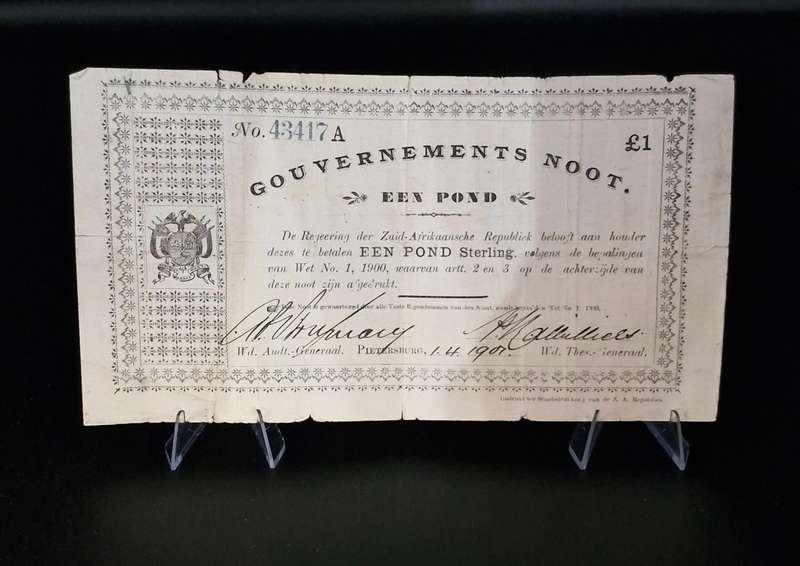 No. 43417 A
£1
GOUVERNEMENTS NOOT.
EEN POND
De Regeering der Zuid-Afrikaansche Republiek belooft aan houder
dezes te betalen EEN POND Sterling, volgens de bepalingen
van Wet No. 1, 1900, waarvan artt. 2 en 3 op de achterzijde van
deze noot zijn afgedrukt.
Noot is gewaarborgd door alle Vaste Eigendommen van den Staat, 1900.
Wd. Audt.-Generaal. PIETERSBURG, 1.4.1901. Wd. Thes.-Generaal.
Gedrukt ter Staatsdrukkerij van de Z. A. Republiek.